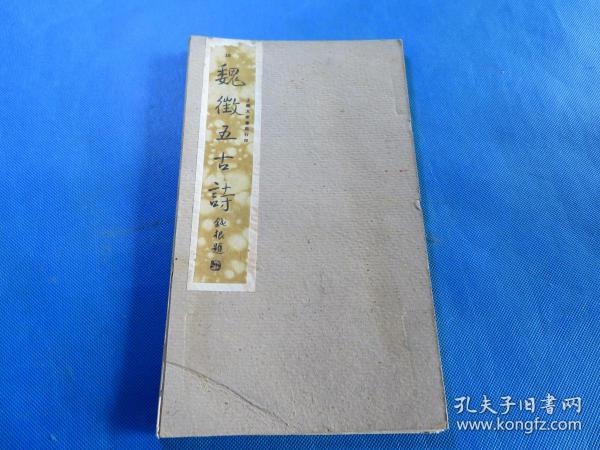 魏徵五古詩
鈍根題
孔夫子旧书网
www.kongfz.com